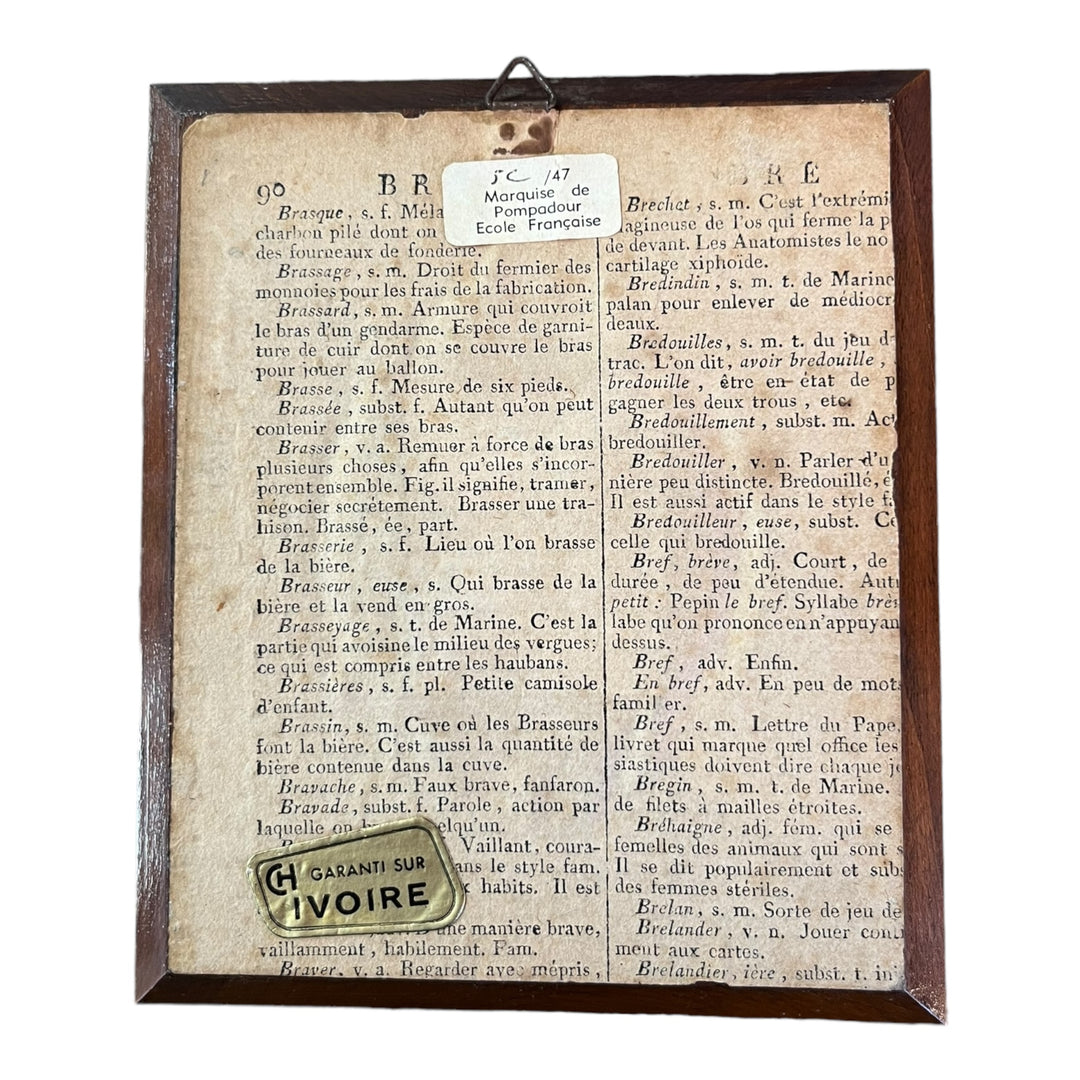 5C /47
Marquise de
Pompadour
Ecole Française
90 BR
Brasque, s. f. Méla
charbon pilé dont on
des fourneaux de fonderie.
Brassage, s. m. Droit du fermier des
monnoies pour les frais de la fabrication.
Brassard, s. m. Armure qui couvroit
le bras d'un gendarme. Espèce de garni-
ture de cuir dont on se couvre le bras
pour jouer au ballon.
Brasse, s. f. Mesure de six pieds.
Brassée, subst. f. Autant qu'on peut
contenir entre ses bras.
Brasser, v. a. Remuer à force de bras
plusieurs choses, afin qu'elles s'incor-
porent ensemble. Fig. il signifie, tramer,
négocier secrétement. Brasser une tra-
hison. Brassé, ée, part.
Brasserie, s. f. Lieu où l'on brasse
de la bière.
Brasseur, euse, s. Qui brasse de la
bière et la vend en gros.
Brasseyage, s. t. de Marine. C'est la
partie qui avoisine le milieu des vergues;
ce qui est compris entre les haubans.
Brassières, s. f. pl. Petite camisole
d'enfant.
Brassin, s. m. Cuve où les Brasseurs
font la bière. C'est aussi la quantité de
bière contenue dans la cuve.
Bravache, s. m. Faux brave, fanfaron.
Bravade, subst. f. Parole, action par
laquelle on elqu'un.
Vaillant, coura-
ans le style fam.
habits. Il est
une manière brave,
vaillamment, habilement. Fam.
Braver, v. a. Regarder avec mépris,
BRE
Brechet, s. m. C'est l'extrémi
lagineuse de l'os qui ferme la p
de devant. Les Anatomistes le no
cartilage xiphoïde.
Bredindin, s. m. t. de Marine
palan pour enlever de médiocr
deaux.
Bredouilles, s. m. t. du jeu d
trac. L'on dit, avoir bredouille,
bredouille, être en état de p
gagner les deux trous, etc.
Bredouillement, subst. m. Act
bredouiller.
Bredouiller, v. n. Parler d'u
nière peu distincte. Bredouillé, é
Il est aussi actif dans le style f
Bredouilleur, euse, subst. Ce
celle qui bredouille.
Bref, brève, adj. Court, de
durée, de peu d'étendue. Anti
petit : Pepin le bref. Syllabe brè
labe qu'on prononce en n'appuyan
dessus.
Bref, adv. Enfin.
En bref, adv. En peu de mots
famil er.
Bref, s. m. Lettre du Pape,
livret qui marque quel office les
siastiques doivent dire chaque j
Bregin, s. m. t. de Marine.
de filets à mailles étroites.
Bréhaigne, adj. fém. qui se
femelles des animaux qui sont s
Il se dit populairement et subs
des femmes stériles.
Brelan, s. m. Sorte de jeu de
Brelander, v. n. Jouer conti
ment aux cartes.
Brelandier, ière, subst. t. in
CH GARANTI SUR
IVOIRE